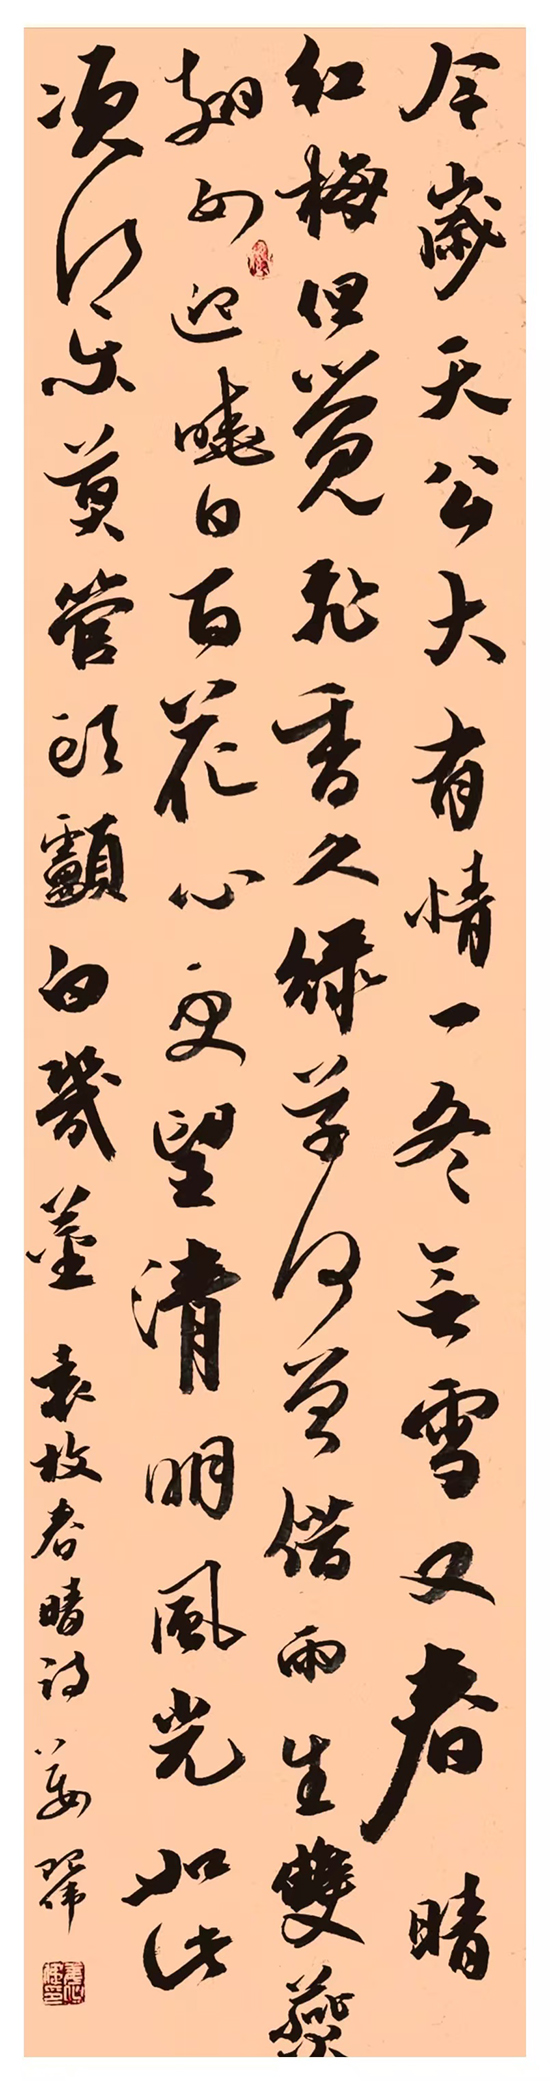 今歲天公大有情一冬無雪又春晴
紅梅但覺飛香久緑草何曾借雨生雙燕
翅如迎曉日百花心更望清明風光如此
須行樂莫管頭顱白幾莖 袁枚春晴詩 姜